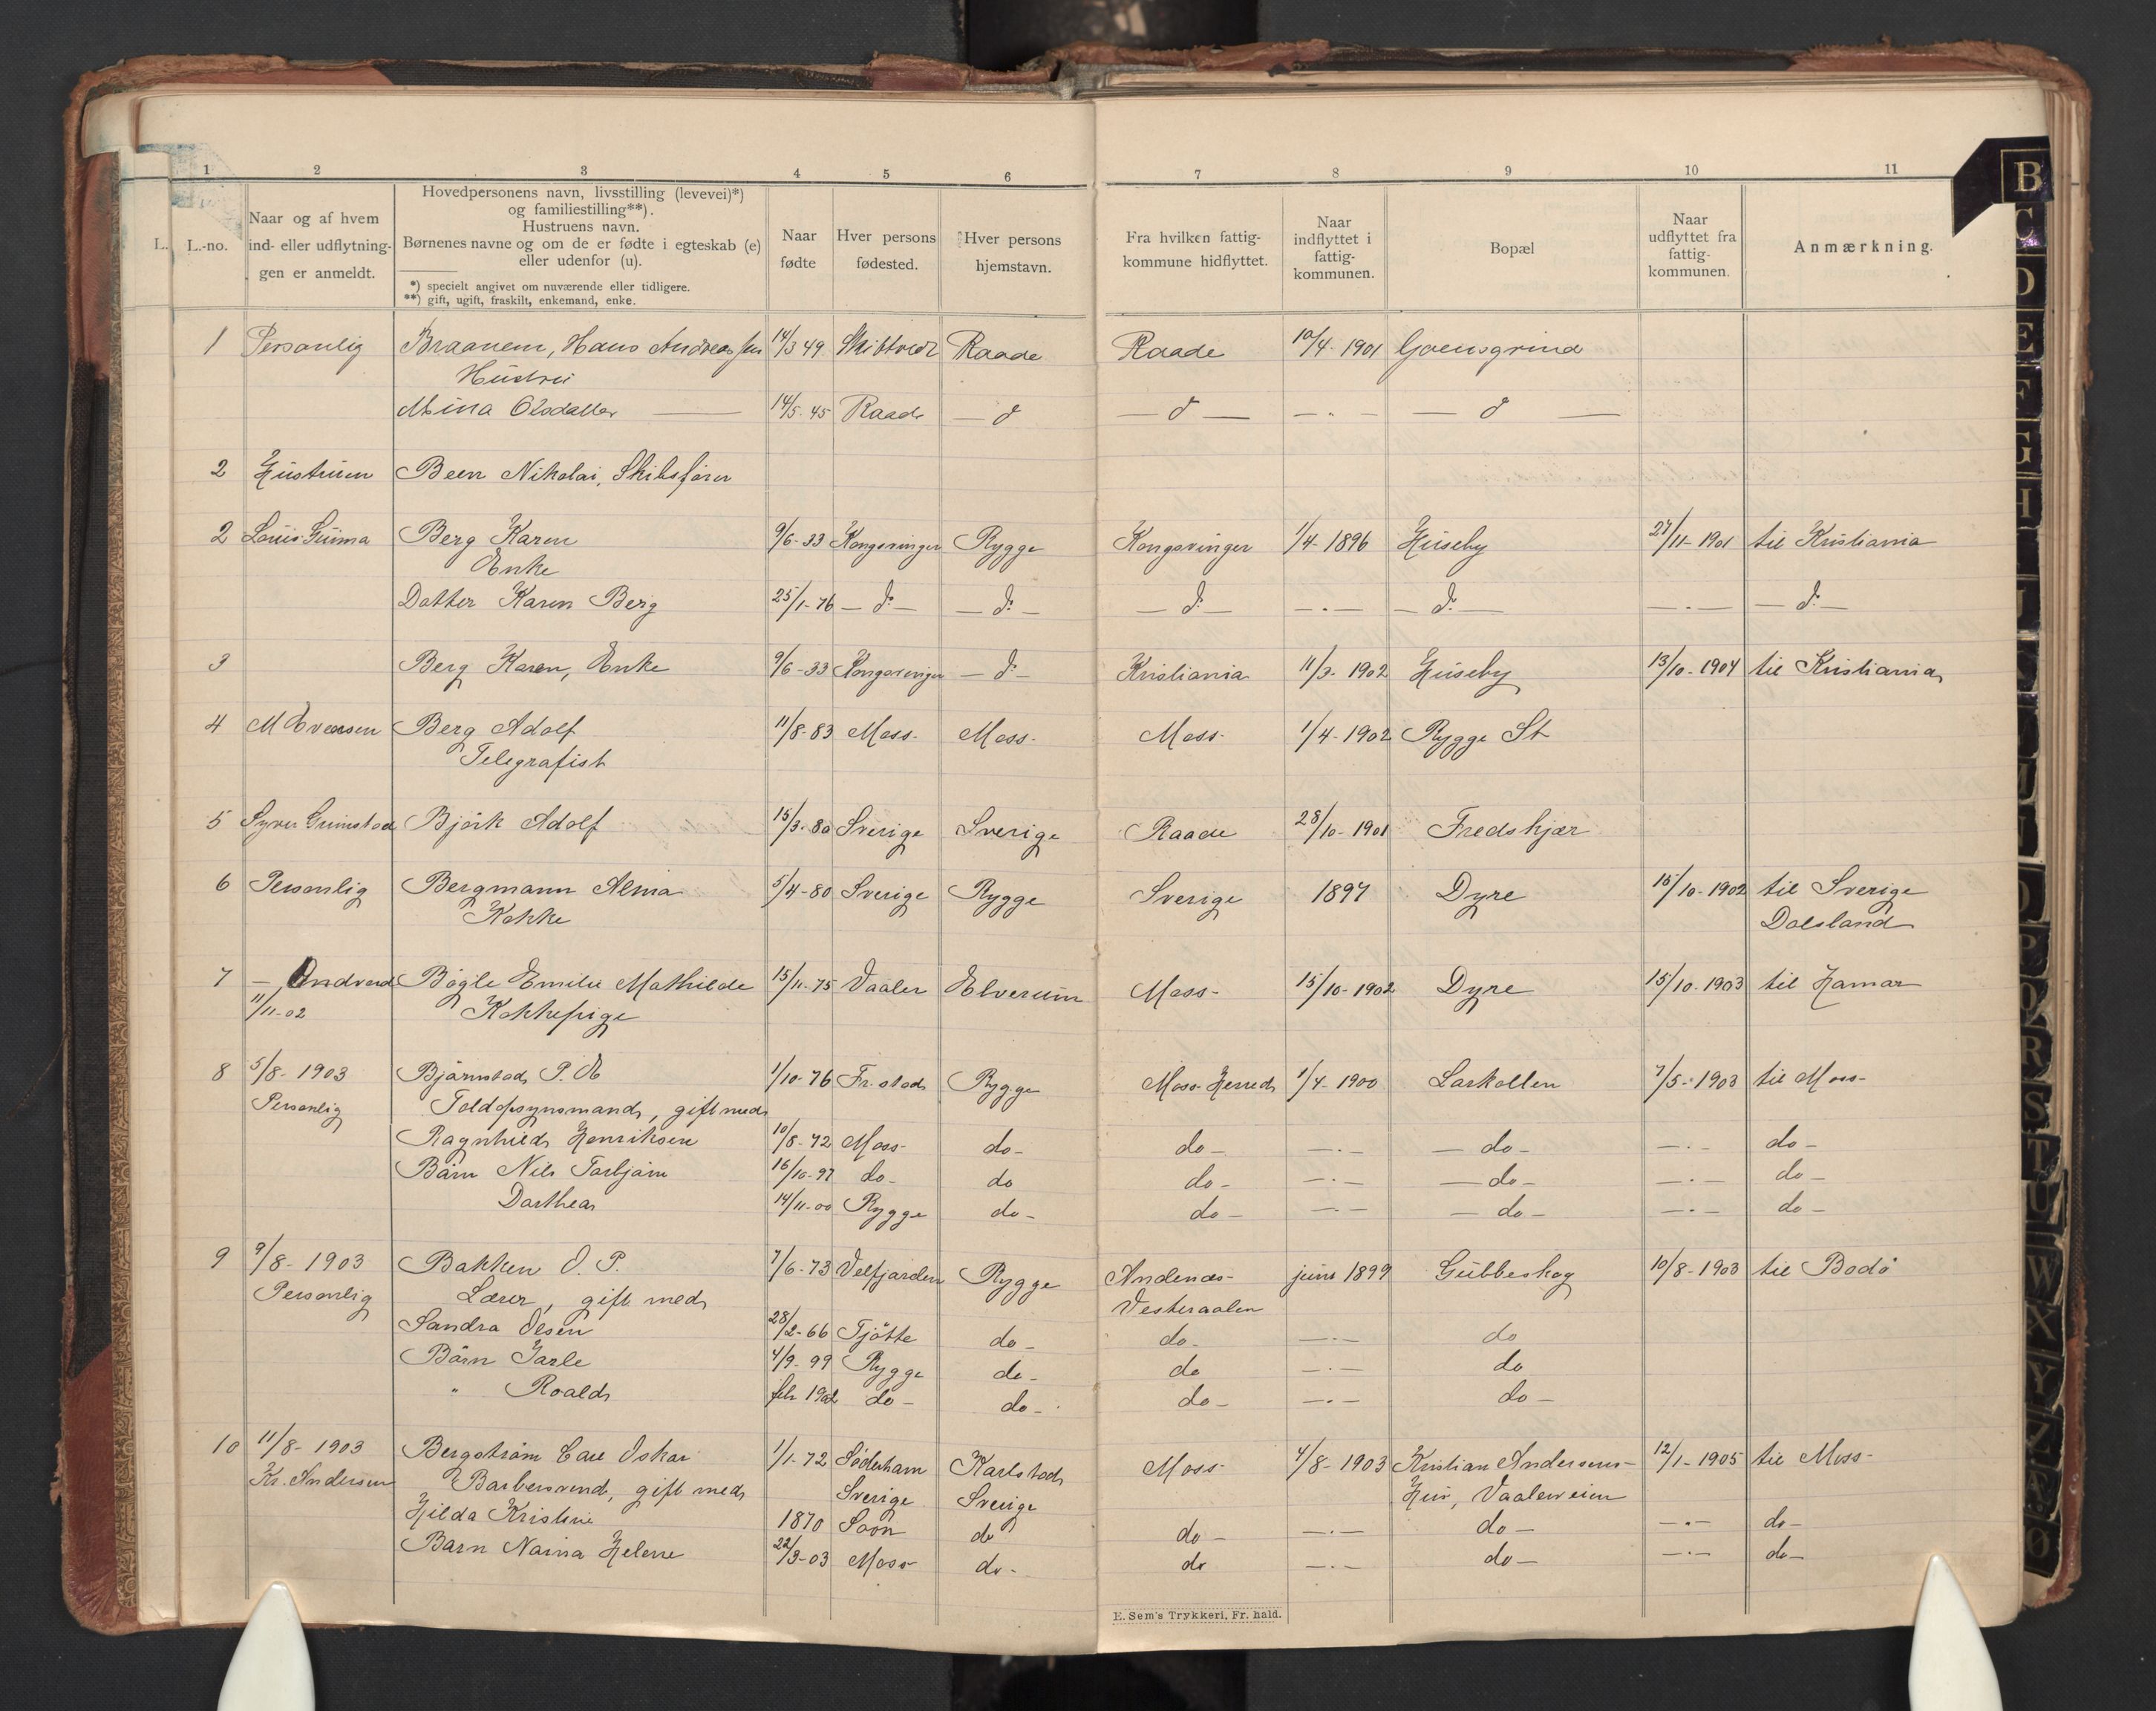 1 2 3 4 5 6 7 8 9 10 11
L. L.-no.
Naar og af hvem
ind- eller udflytning-
gen er anmeldt.
Hovedpersonens navn, livsstilling (levevei)*)
og familiestilling**).
Hustruens navn.
Børnenes navne og om de er fødte i egteskab (e)
eller udenfor (u).
*) specielt angivet om nuværende eller tidligere.
**) gift, ugift, fraskilt, enkemand, enke.
Naar
fødte
Hver persons
fødested.
Hver persons
hjemstavn.
Fra hvilken fattig-
kommune hidflyttet.
Naar
indflyttet i
fattig-
kommunen.
Bopæl
Naar
udflyttet fra
fattig-
kommunen.
Anmærkning.
1 Personlig Braanem, Hans Andreassen 14/3 49 Skibtvedt Raade Raade 10/4-1901 Goensgrind
Hustru
Mina Olsdatter 14/5-45 Raade — d — d — — · — — d —
2 Hustruen Been Nikolai, Skibsfører
2 Louis Guima Berg Karen 9/6-33 Kongsvinger Rygge Kongsvinger 1/4-1896 Huseby 27/11-1901 til Kristiania
Enke
Datter Karen Berg 25/1-76 — d: — — d: — — d: — — · — — d: — — · — — d: —
3 Berg Karen, Enke 9/6-33 Kongsvinger — d — Kristiania 11/3-1902 Huseby 13/10-1904 til Kristiania
4 M Evensen Berg Adolf 11/8-83 Moss- Moss- Moss- 1/4-1902 Rygge St
Telegrafist
5 Syver Grimstad Björk Adolf 15/3-80 Sverige Sverige Raade 28/10-1901 Fredskjær
6 Personlig Bergmann Alma 5/4-80 Sverige Rygge Sverige 1897 Dyre 15/10-1902 til Sverige
Kokke Dalsland
7 — Andvord Bögle Emilie Mathilde 15/11-75 Vaaler Elverum Moss- 15/10-1902 Dyre 15/10-1903 til Hamar
11/11-02 Kokkepige
8 5/8-1903 Bjørnstad P. A 1/10-76 Fr.stad Rygge Moss Herred 1/4-1900 Larkollen 7/5-1903 til Moss-
Personlig Toldopsynsmand, gift med
Ragnhild Henriksen 10/8-72 Moss- do- do- — · — — do- — · — do-
Börn Nils Torbjörn 16/10-97 do- do do- — · — — do- — · — do-
Dorthea 14/11-00 Rygge do- do- — · — — do- — · — do-
9 9/8-1903 Bakken O. P. 7/6-73 Velfjorden Rygge Andenæs- juni 1899 Gubbeskog 10/8-1903 til Bodö
Personlig Lærer, gift med Vesteraalen
Sandra Olsen 28/2-66 Tjötte do- do- — · — do
Börn Jarle 4/9-99 Rygge do- do — · — do
" Roald febr 1902 do- do- do- — · — do-
10 11/8-1903 Bergström Carl Oskar 1/1-72 Söderham Karlstad Moss- 4/8-1903 Kristian Andersens- 12/1-1905 til Moss-
Kr. Andersen Barbersvend, gift med Sverige Sverige Hus, Vaalerveien
Hilda Kristine 1870 Soon do do- — · — do- — · — do-
Barn Naima Helene 22/3-03 Moss- do- do — · — do- — · — do-
E. Sem's Trykkeri, Fr. hald.
B
C
D
E
F
G
H
I
J
O
P
Q
R
S
T
U
W
X
Y
Z
Æ
Ø